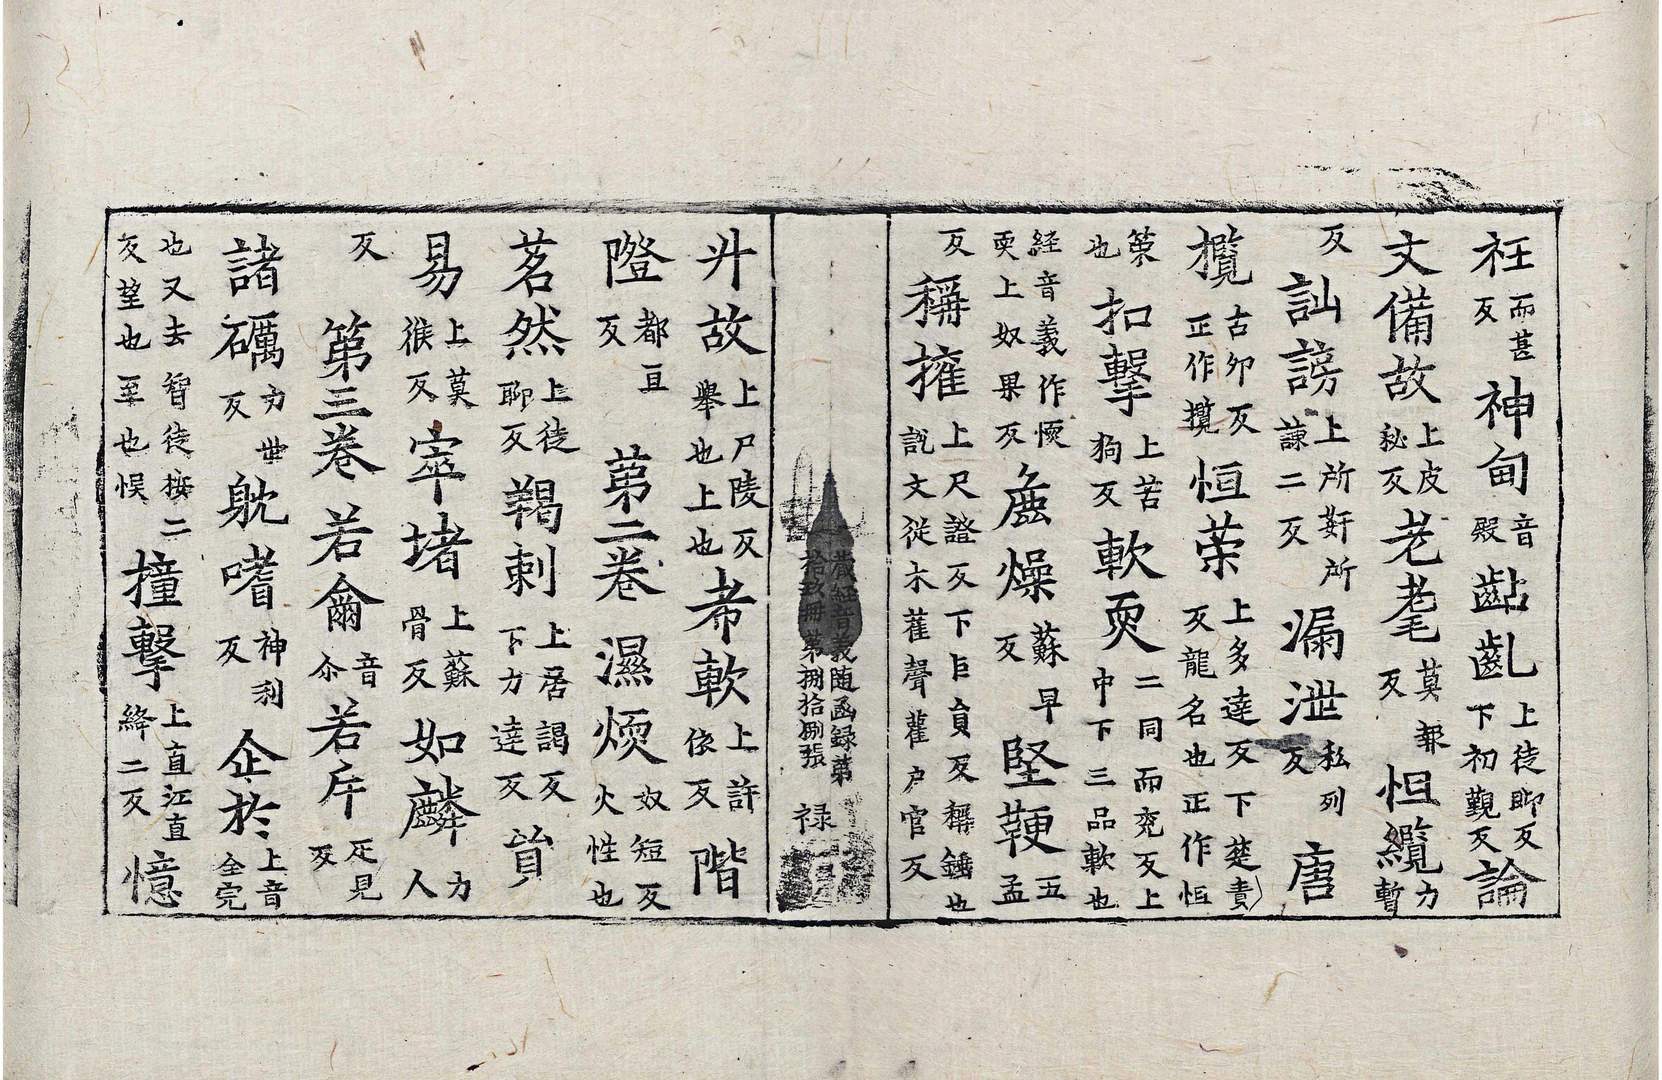 衽而甚反神甸音殿齠齔上徒聊反下初覲反論
文備故上皮秘反老耄莫報反怛纜力暫
反訕謗上所奸所諫二反漏泄私列反唐
攬古卯反正作攪恒荣上多達反下楚責反龍名也正作恒
策也扣擊上苦狗反軟耎二同而兖反上中下三品軟也
経音義作㥠耎上奴果反麁燥蘇早反堅鞕五孟
反稱搉上尺證反下巨負反稱錘也說文從木雚聲雚户官反
藏経音義随函録第
拾玖冊第捌拾捌張 禄
升故上尸陵反舉也上也希軟上許依反階
隥都亘反 第二卷 濕煗奴短反火性也
茗然上徒聊反羯剌上居謁反下力達反貿
易上莫候反窣堵上蘇骨反如麟力人
反 第三卷 若龠音尒若斥疋見反
諸礪力世反躭嗜神利反企於上音全完
也又去智徒按二反望也至也悮撞擊上直江直絳二反憶